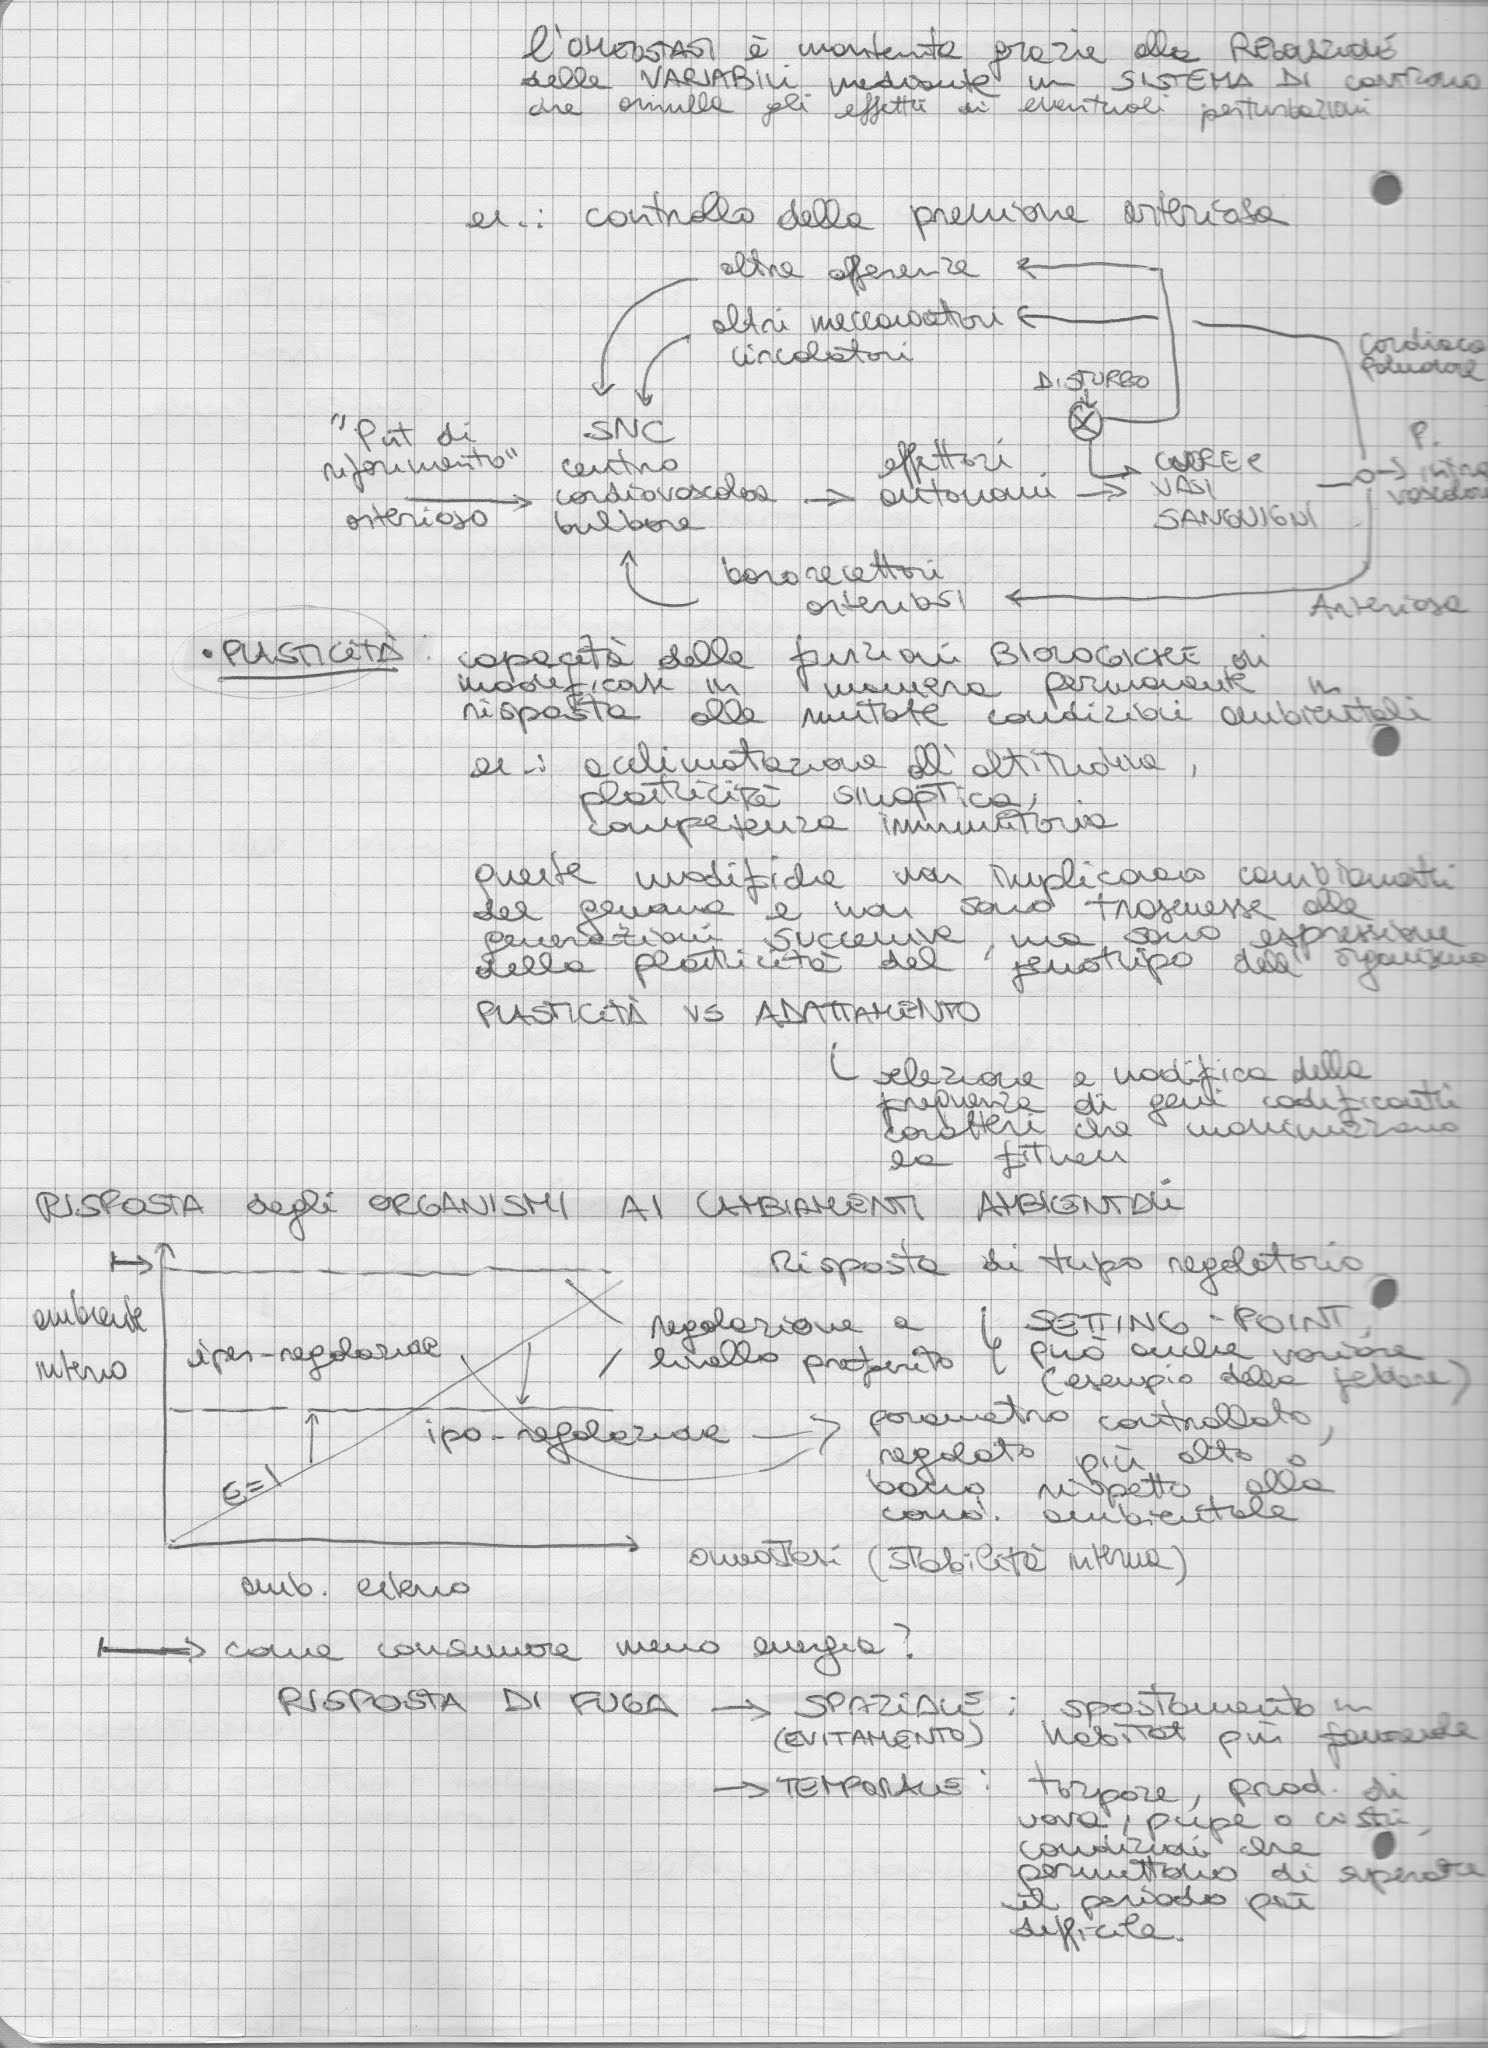 l'OMEOSTASI è mantenuta grazie alla REGOLAZIONE
delle VARIABILI mediante un SISTEMA DI CONTROLLO
che annulla gli effetti di eventuali perturbazioni
es.: controllo della pressione arteriosa
altre afferenze
altri meccanocettori
circolatori
cardiaca
polmonare
DISTURBO
"Punt di
riferimento"
arterioso
SNC
centro
cardiovascolare
bulbare
effettori
autonomi
CUORE e
VASI
SANGUIGNI
P.
intra
vascolare
barorecettori
arteriosi
Arteriosa
• PLASTICITÀ: capacità delle funzioni BIOLOGICHE di
modificarsi in maniera permanente in
risposta alle mutate condizioni ambientali
es.: acclimatazione all'altitudine,
plasticità sinaptica,
competenza immunitaria
queste modifiche non implicano cambiamenti
del genoma e non sono trasmesse alle
generazioni successive, ma sono espressione
della plasticità del fenotipo dell'organismo
PLASTICITÀ VS ADATTAMENTO
selezione e modifica della
frequenza di geni codificanti
caratteri che massimizzano
la fitness
RISPOSTA degli ORGANISMI AI CAMBIAMENTI AMBIENTALI
Risposta di tipo regolatorio
ambiente
interno
iper-regolazione
regolazione a
livello preferito
SETTING-POINT,
può anche variare
(esempio della febbre)
ipo-regolazione
parametro controllato,
regolato più alto o
basso rispetto alla
cond. ambientale
e=1
omeostasi (stabilità interna)
amb. esterno
come consumare meno energia?
RISPOSTA DI FUGA → SPAZIALE: spostamento in
(EVITAMENTO) habitat più favorevole
→ TEMPORALE: torpore, prod. di
uova, pupe o cisti,
condizioni che
permettono di superare
il periodo più
difficile.